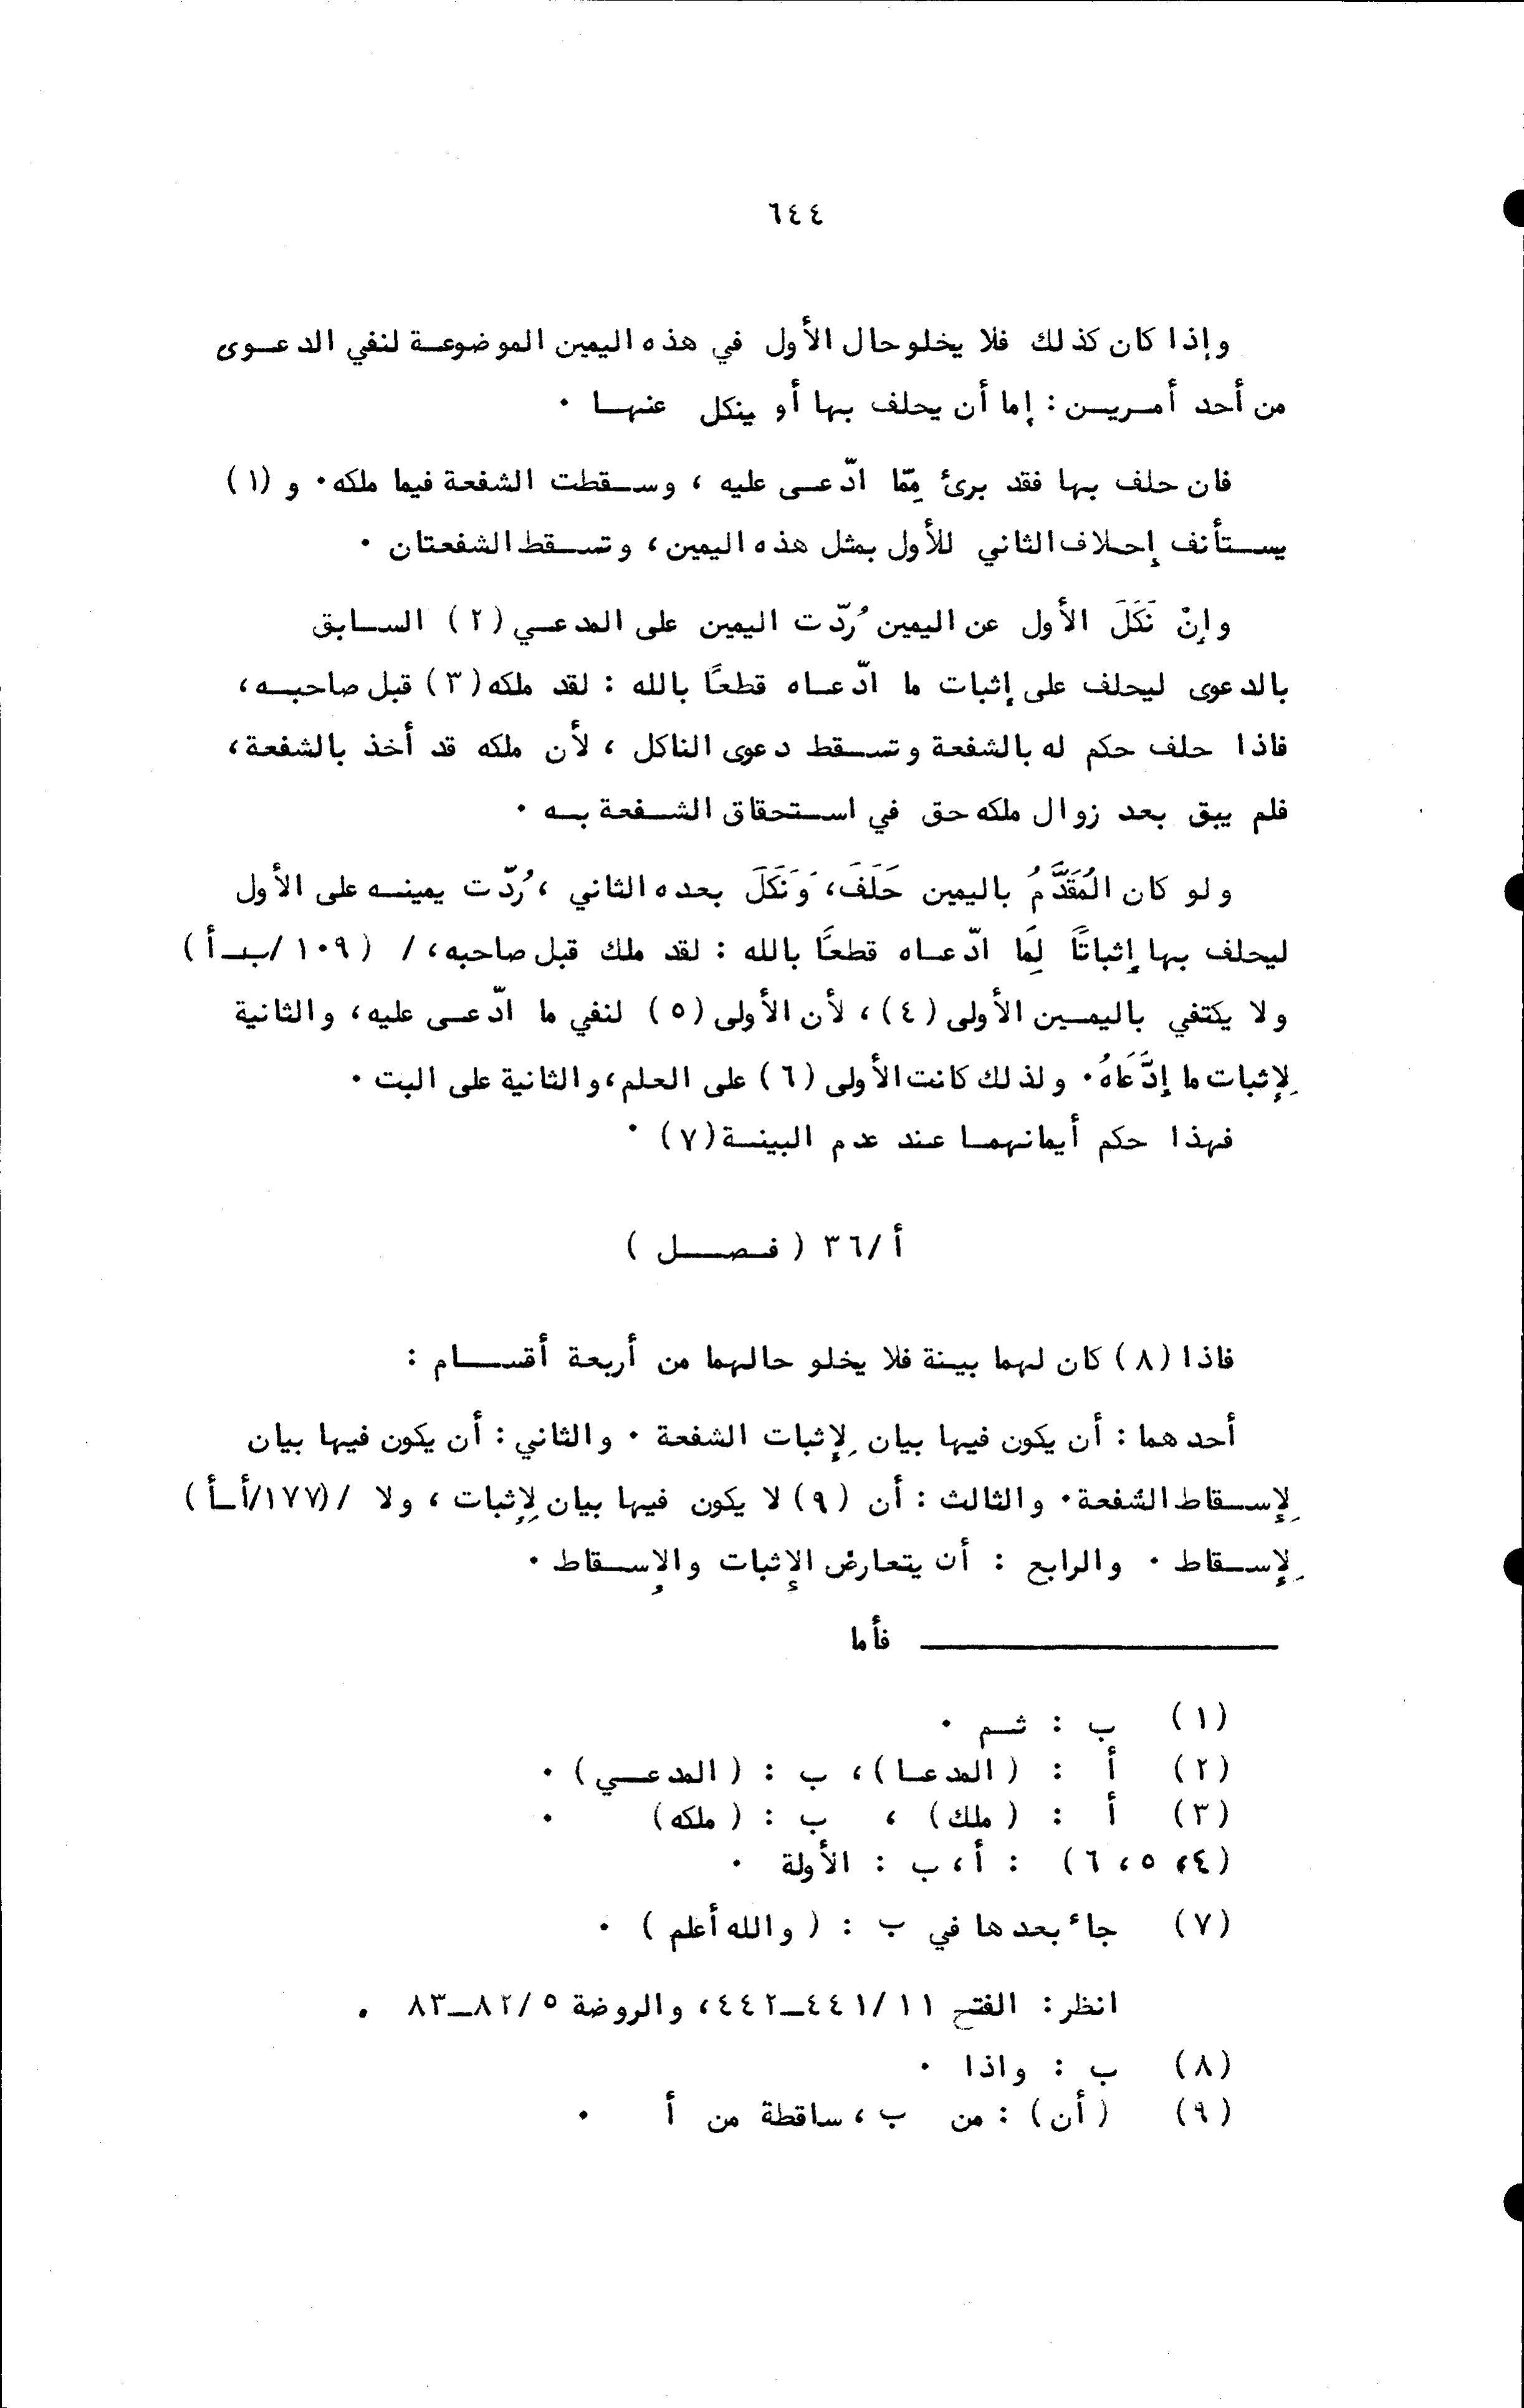 ٦٤٤
وإذا كان كذلك فلا يخلو حال الأول في هذه اليمين الموضوعة لنفي الدعوى
من أحد أمرين : إما أن يحلف بها أو ينكل عنها ٠
فان حلف بها فقد برئ مِمّا ادّعى عليه ، وسقطت الشفعة فيما ملكه ٠ و (١)
يستأنف إحلاف الثاني للأول بمثل هذه اليمين ، وتسقط الشفعتان ٠
وإنْ نَكَلَ الأول عن اليمين رُدّت اليمين على المدعي (٢) السابق
بالدعوى ليحلف على إثبات ما ادّعاه قطعًا بالله : لقد ملكه (٣) قبل صاحبه ،
فاذا حلف حكم له بالشفعة وتسقط دعوى الناكل ، لأن ملكه قد أخذ بالشفعة ،
فلم يبق بعد زوال ملكه حق في استحقاق الشفعة به ٠
ولو كان المُقَدَّمُ باليمين حَلَفَ ، وَنَكَلَ بعده الثاني ، رُدّت يمينه على الأول
ليحلف بها إثباتًا لِمَا ادّعاه قطعًا بالله : لقد ملك قبل صاحبه ، / (١٠٩/ب_أ)
ولا يكتفي باليمين الأولى (٤) ، لأن الأولى (٥) لنفي ما ادّعى عليه ، والثانية
لِإثبات ما إدَّعَاهُ ٠ ولذلك كانت الأولى (٦) على العلم ، والثانية على البت ٠
فهذا حكم أيمانهما عند عدم البينة (٧) ٠
أ/٣٦ ( فصل )
فاذا (٨) كان لهما بينة فلا يخلو حالهما من أربعة أقسام :
أحدهما : أن يكون فيها بيان لِإثبات الشفعة ٠ والثاني : أن يكون فيها بيان
لِإسقاط الشفعة ٠ والثالث : أن (٩) لا يكون فيها بيان لِإثبات ، ولا / (١٧٧/أ_أ)
لِإسقاط ٠ والرابع : أن يتعارض الإثبات والإسقاط ٠
فأما
(١) ب : ثم ٠
(٢) أ : (المدعا) ، ب : (المدعي) ٠
(٣) أ : (ملك) ، ب : (ملكه) ٠
(٤، ٥، ٦) : أ ، ب : الأولة ٠
(٧) جاء بعدها في ب : (والله أعلم) ٠
انظر : الفتح ٤٤١/١١_٤٤٢ ، والروضة ٨٢/٥_٨٣ ٠
(٨) ب : واذا ٠
(٩) (أن) : من ب ، ساقطة من أ ٠